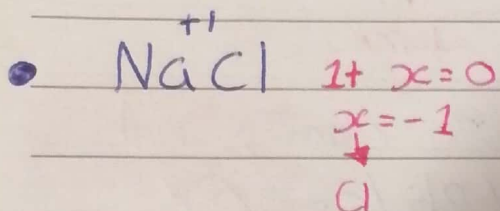 +1
• NaCl 1+ x=0
x=-1
↓
Cl